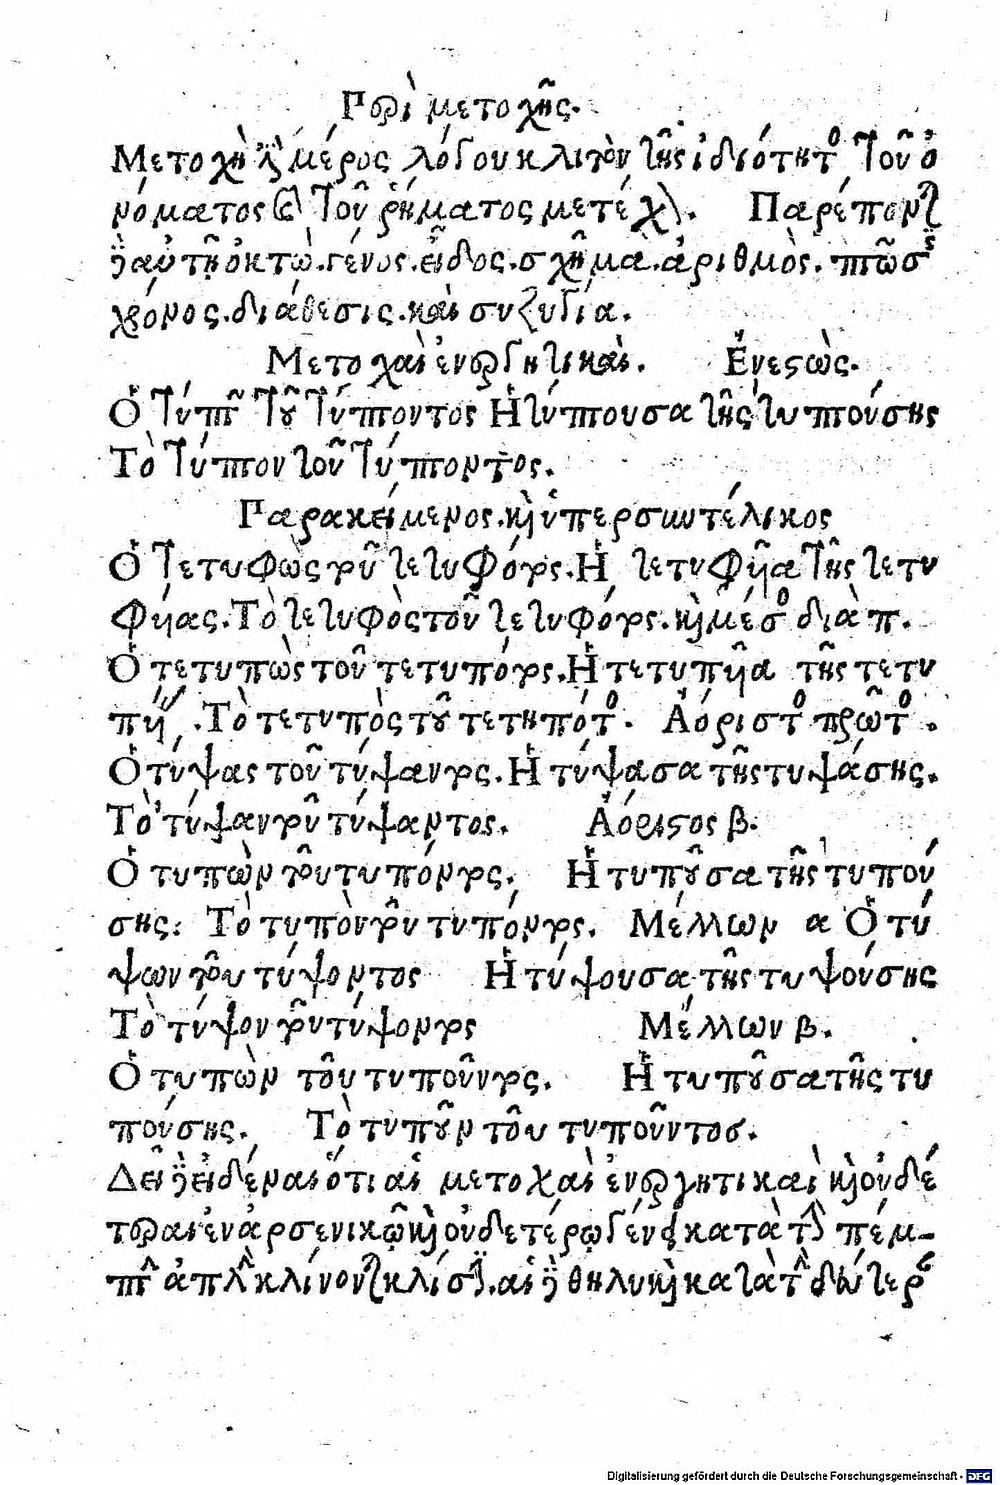 Περὶ μετοχῆς.
Μετοχὴ ἐστὶ μέρος λόγου κλιτὸν τῆς ἰδιότητος τοῦ ὀ
νόματος καὶ τοῦ ῥήματος μετέχον. Παρέπονται
δὲ αὐτῇ ὀκτὼ. γένος. εἶδος. σχῆμα. ἀριθμὸς. πτῶσις
χρόνος. διάθεσις. καὶ συζυγία.
Μετοχαὶ ἐνεργητικαὶ. Ἐνεστὼς.
Ὁ τύπτων τοῦ τύπτοντος Ἡ τύπτουσα τῆς τυπτούσης
Τὸ τύπτον τοῦ τύπτοντος.
Παρακείμενος. καὶ ὑπερσυντέλικος
Ὁ τετυφὼς τοῦ τετυφότος. Ἡ τετυφῆα τῆς τετυ
φήας. Τὸ τετυφὸς τοῦ τετυφότος. καὶ μέσος διὰ π.
Ὁ τετυπὼς τοῦ τετυπότος. Ἡ τετυπῆα τῆς τετυ
πήας. Τὸ τετυπὸς τοῦ τετηπότος. Ἀόριστος πρῶτος.
Ὁ τύψας τοῦ τύψαντος. Ἡ τύψασα τῆς τυψάσης.
Τὸ τύψαν τοῦ τύψαντος. Ἀόριστος β.
Ὁ τυπὼν τοῦ τυπόντος. Ἡ τυποῦσα τῆς τυπού
σης: Τὸ τυπὸν τοῦ τυπόντος. Μέλλων α Ὁ τύ
ψων τοῦ τύψοντος Ἡ τύψουσα τῆς τυψούσης
Τὸ τύψον τοῦ τύψοντος Μέλλων β.
Ὁ τυπὼν τοῦ τυποῦντος. Ἡ τυποῦσα τῆς τυ
πούσης. Τὸ τυποῦν τοῦ τυποῦντοσ.
Δεῖ δὲ εἰδέναι ὅτι αἱ μετοχαὶ ἐνεργητικαὶ καὶ οὐδέ
τεραι ἐν ἀρσενικῷ καὶ οὐδετέρῳ γένει κατὰ τὴν πέμ-
πτην ἁπλῆν κλίνονται κλίσιν. αἱ δὲ θηλυκαὶ κατὰ τὴν δευτέραν